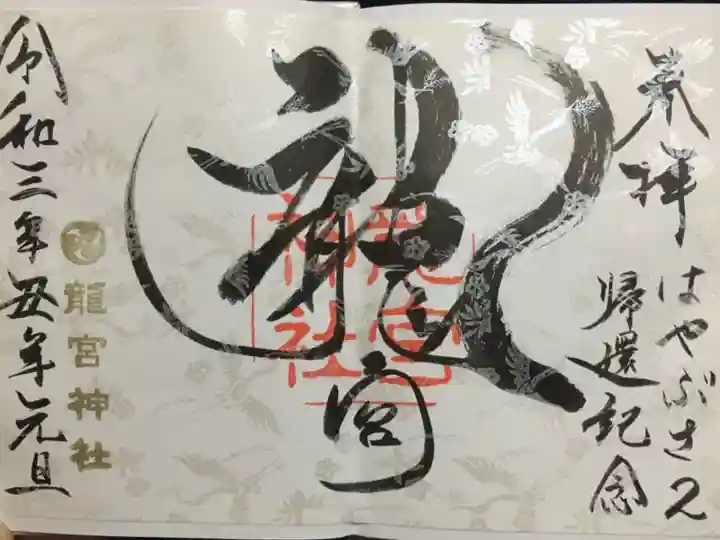 奉拝
はやぶさ2
帰還記念
龍
宮
龍宮
神社
龍宮神社
令和三年丑年元旦